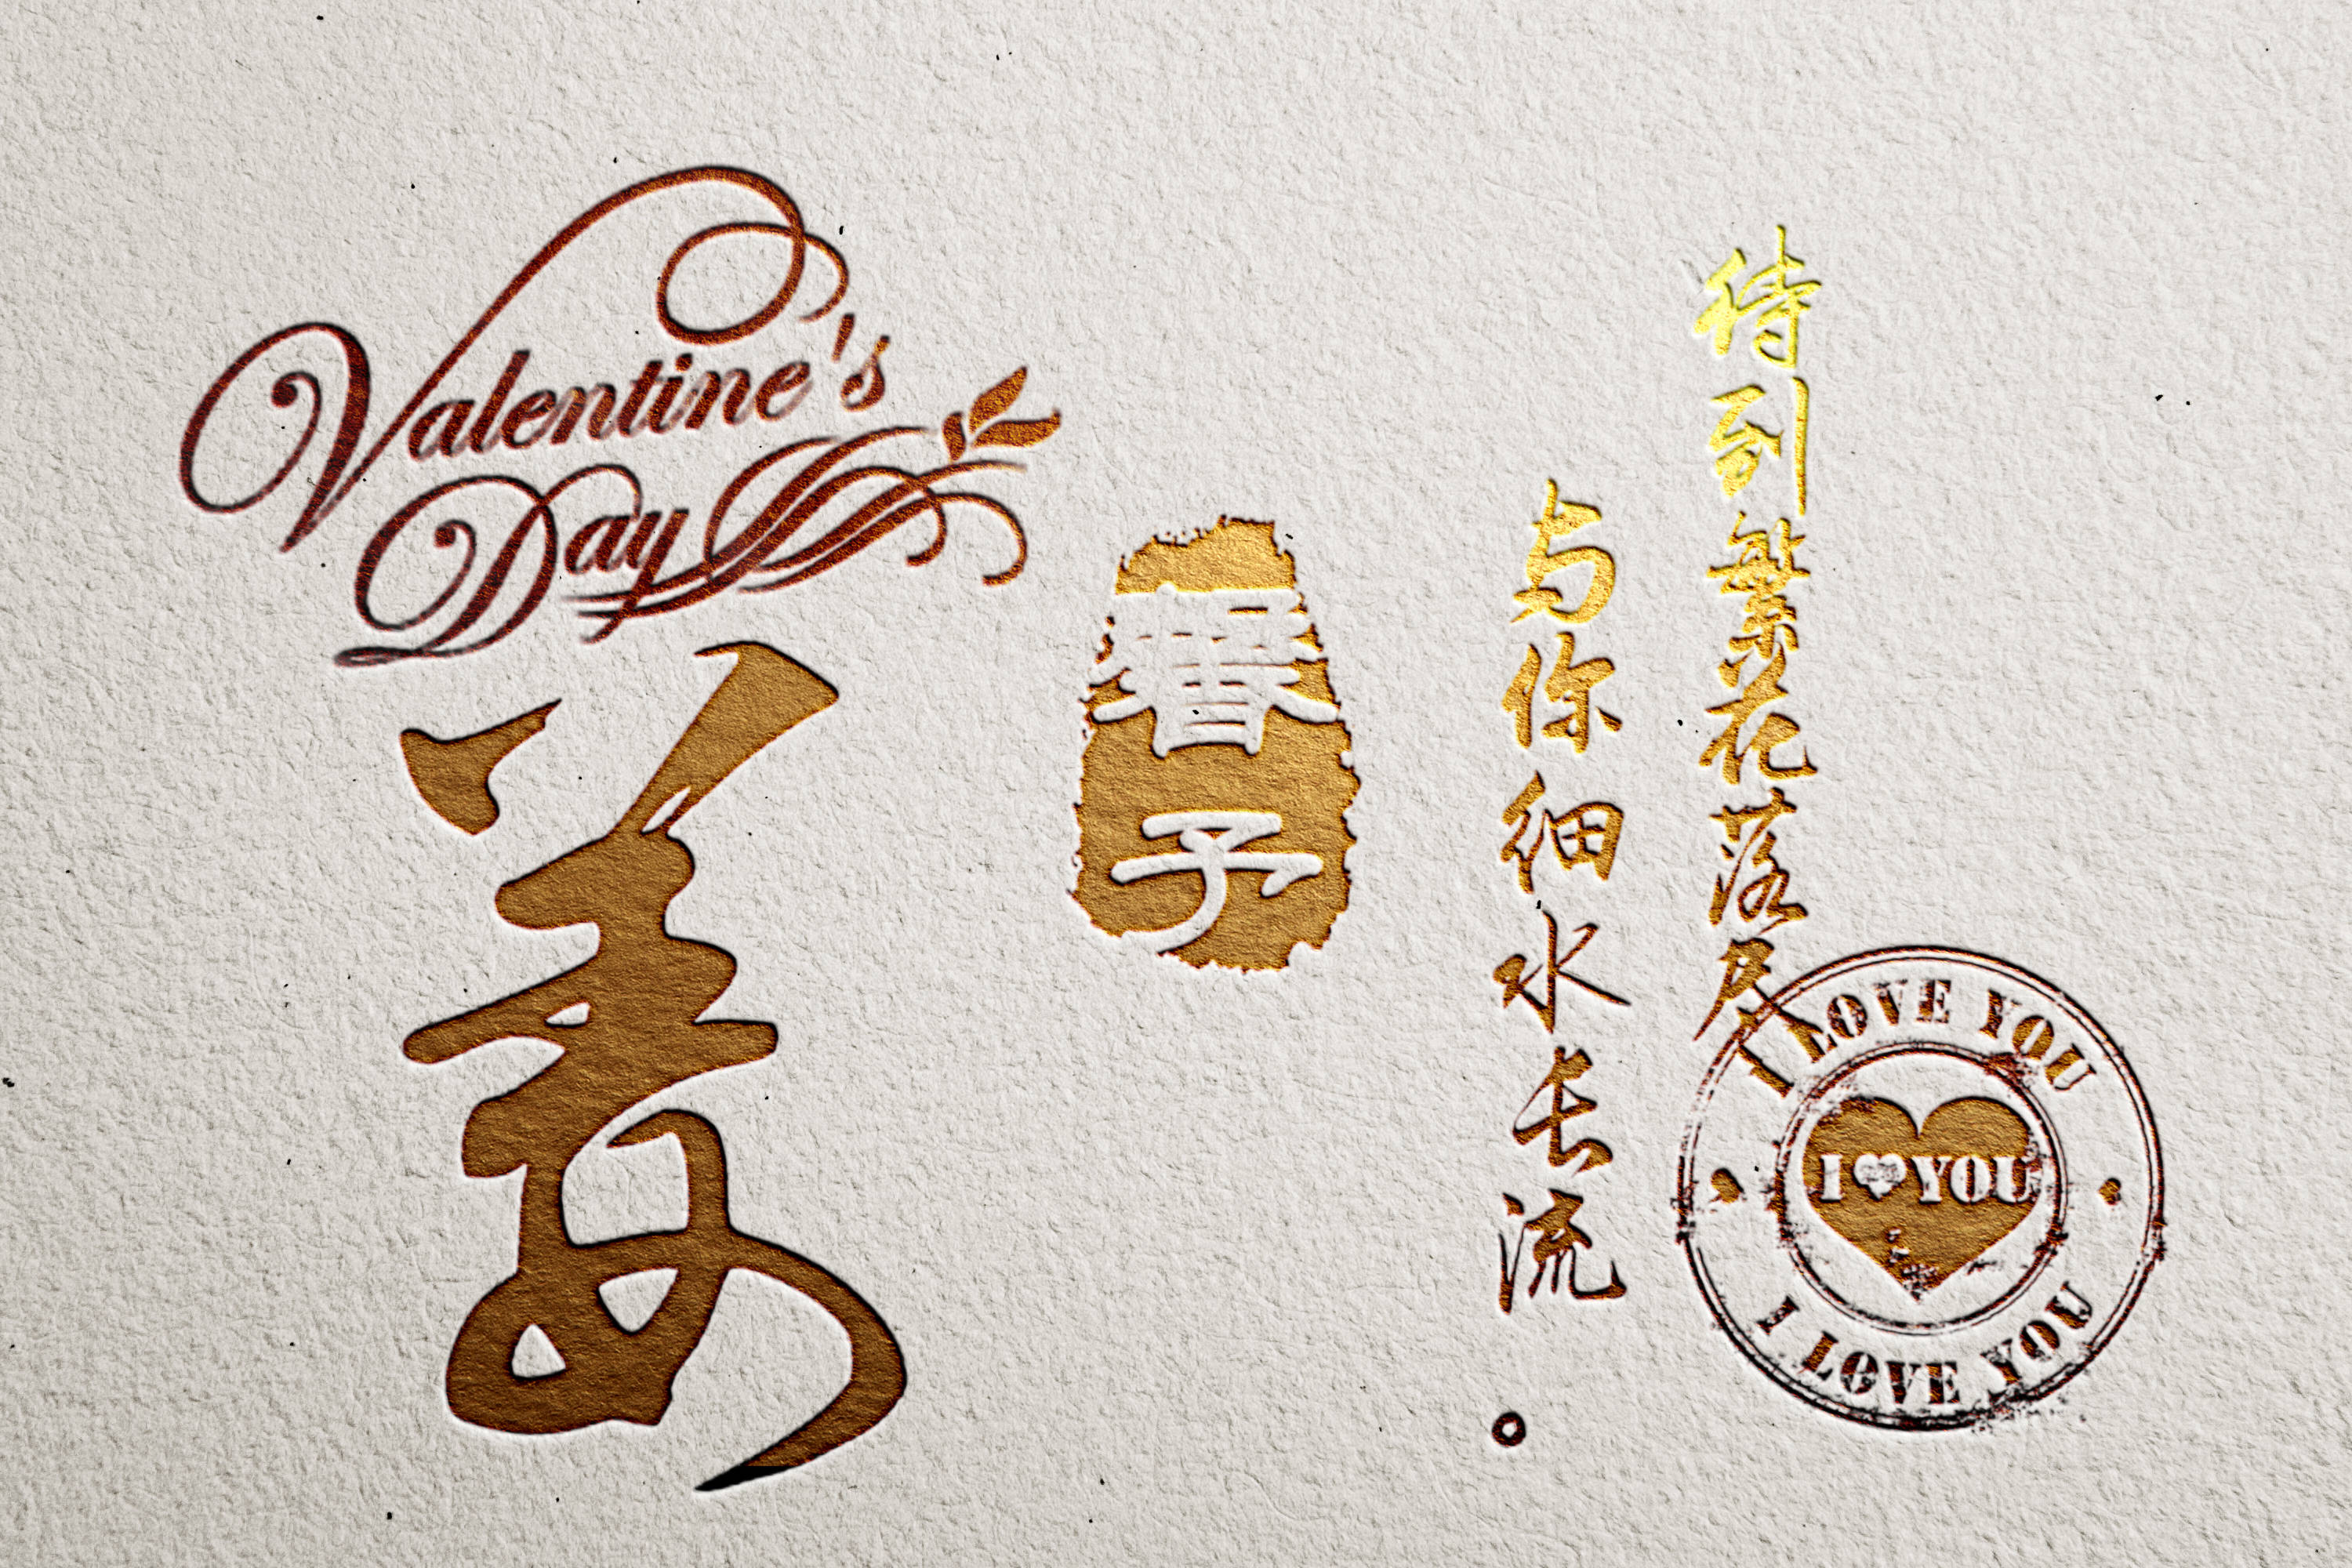 Valentine's
Day
姜
春子
待到繁花落尽
与你细水长流。
I LOVE YOU
I ♥ YOU
I LOVE YOU